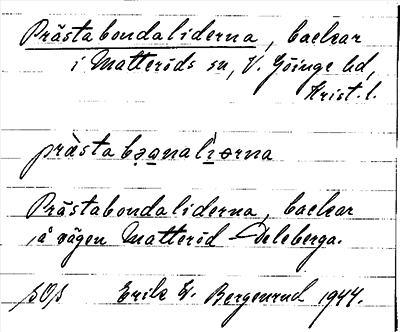 Prästabondaliderna, backar
i Matteröds sn, V. Göinge hd,
Krist. l.
prästabǫnalìərna
Prästabondaliderna, backar
å vägen Matteröd - Aleberga.
sOs Erik E. Bergenrud 1944.